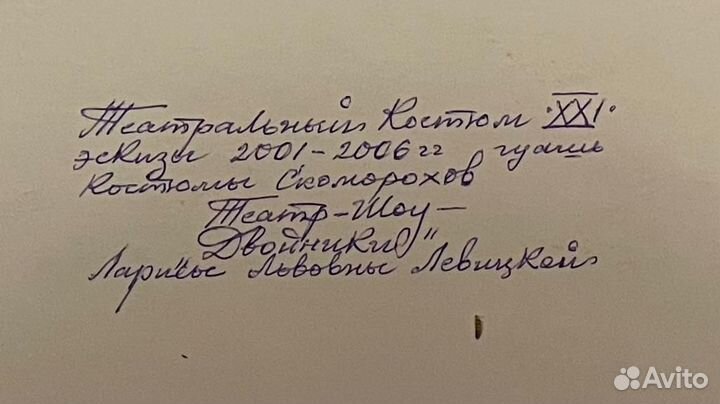 Театральный Костюм "XXI"
эскизы 2001-2006 гг гуашь
Костюмы Скоморохов
Театр-Шоу-
Двойники"
Ларисы Львовны Левицкой
Avito